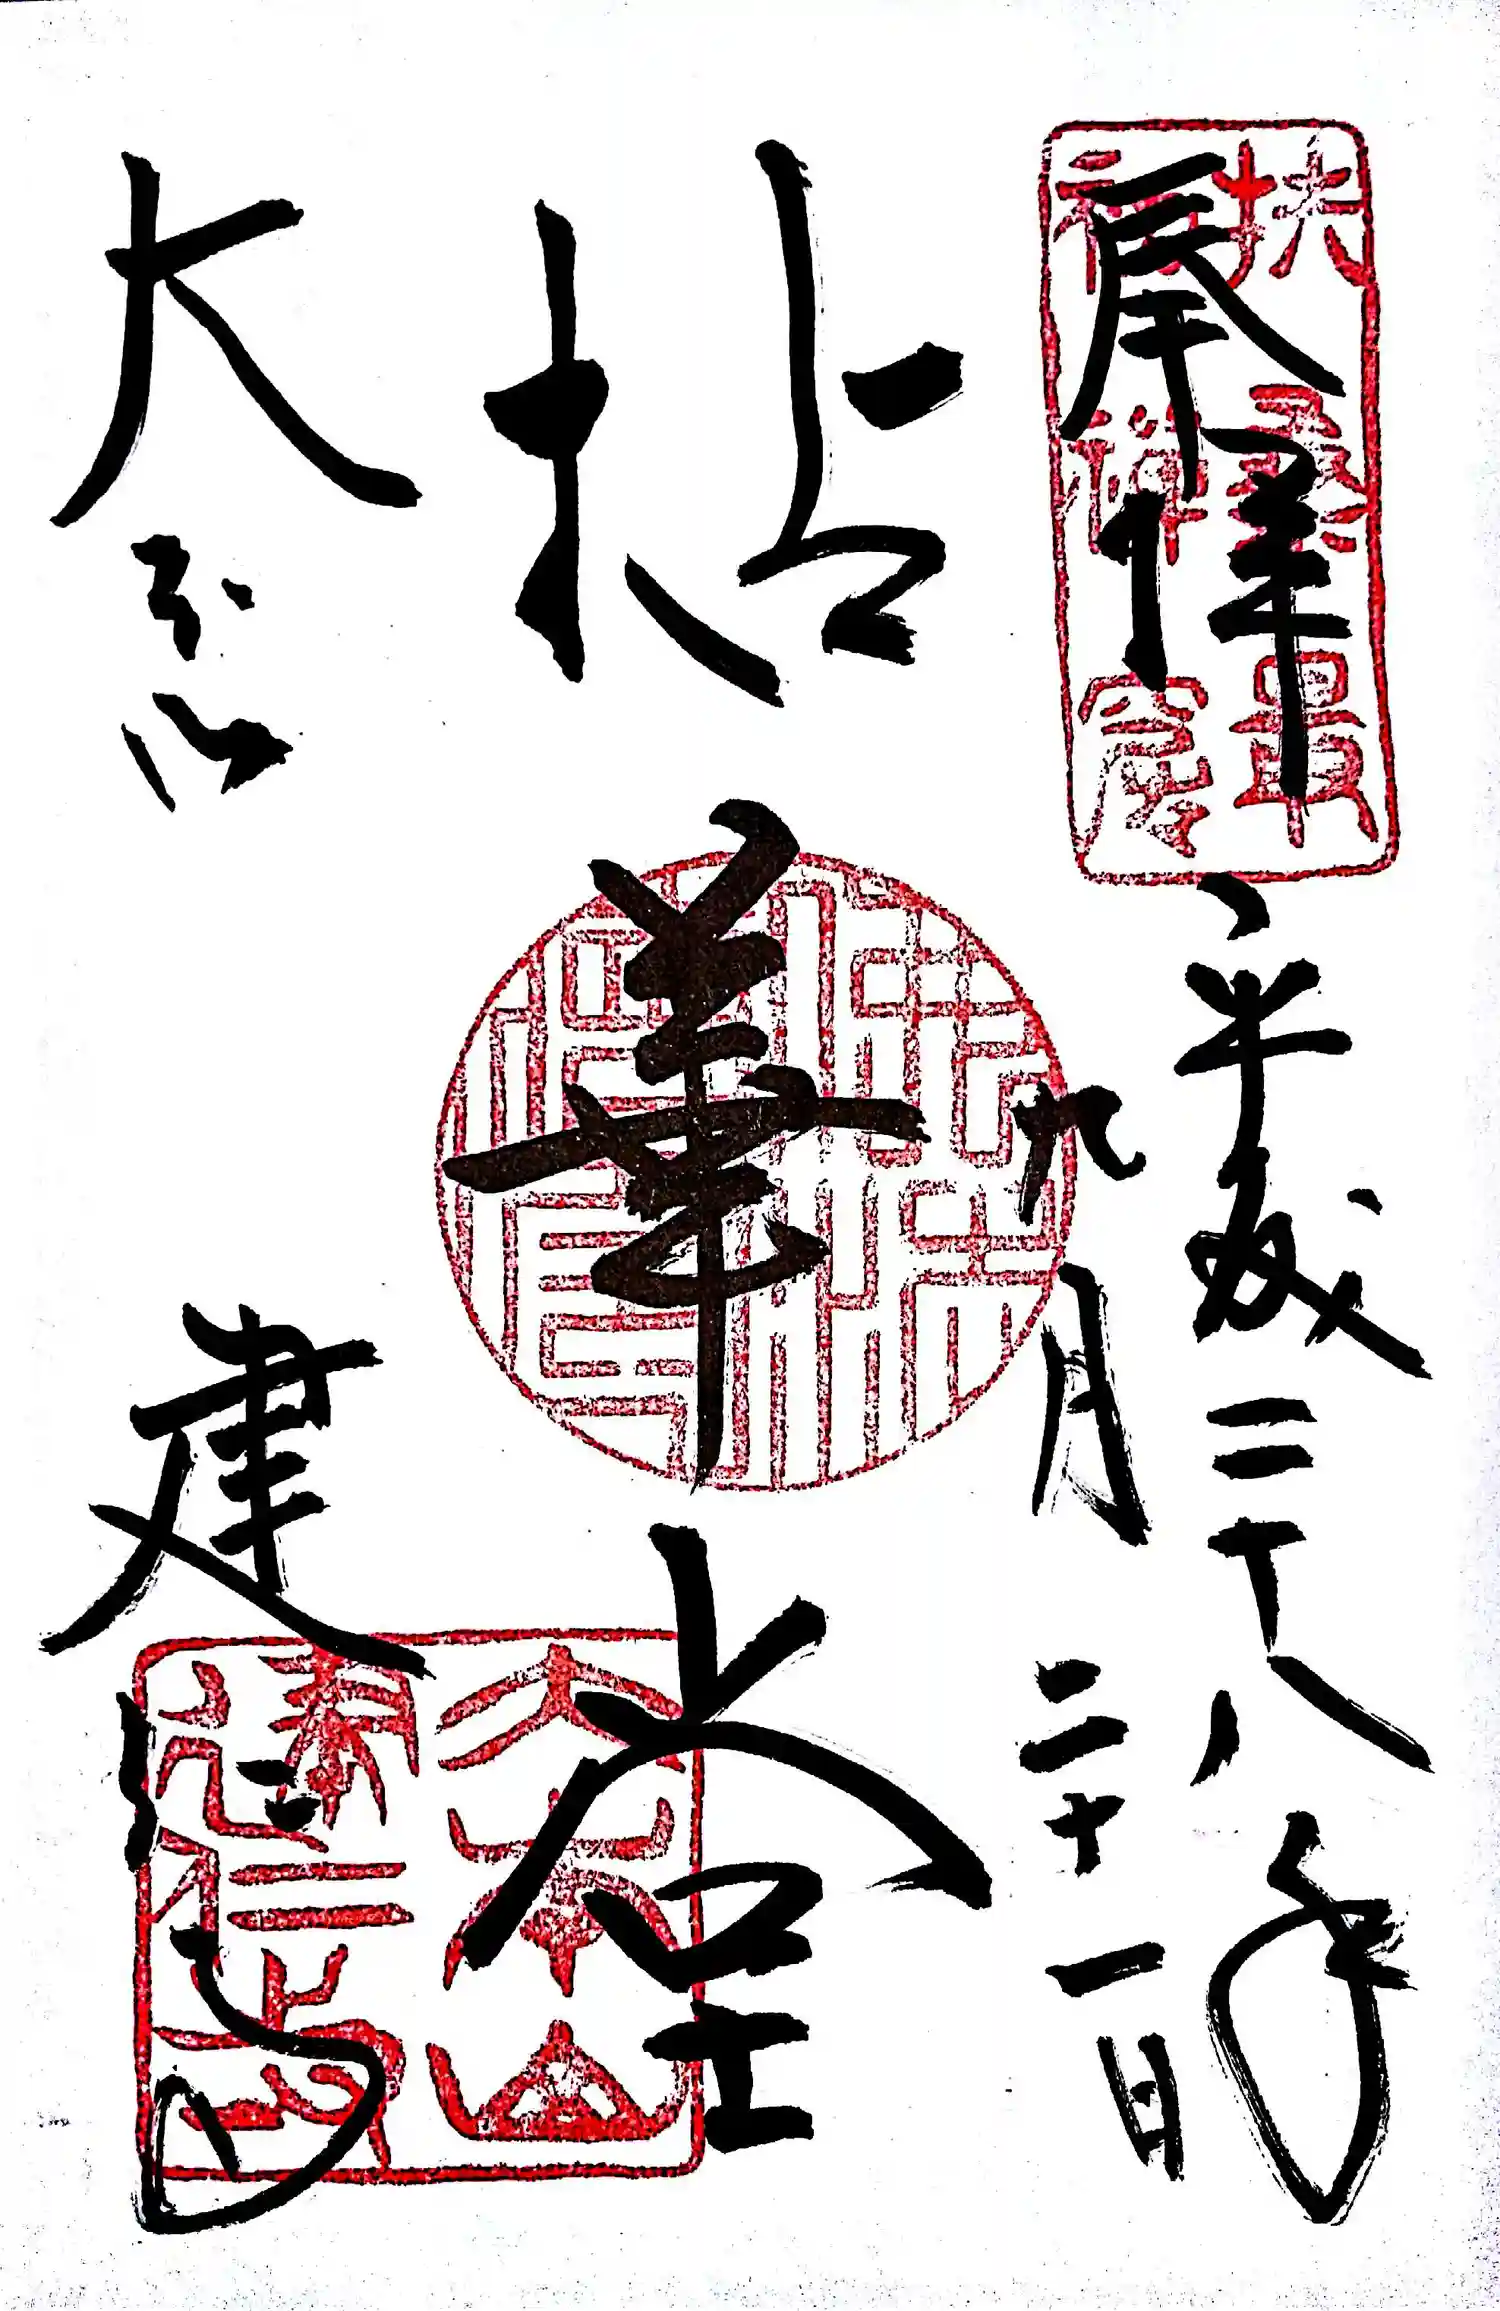 奉拝
平成二十八年
九月二十一日
扶桑最
初禅窟
拈華堂
大本山
建仁寺
大本山
建仁寺